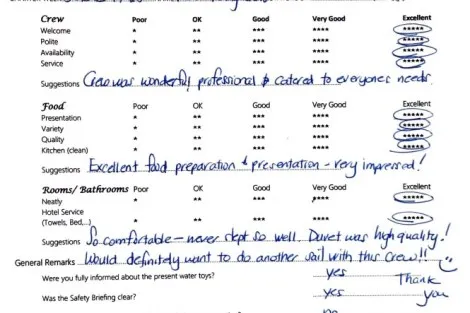 Crew Poor OK Good Very Good Excellent
Welcome * ** *** **** *****
Polite * ** *** **** *****
Availability * ** *** **** *****
Service * ** *** **** *****
Suggestions Crew was wonderful, professional & catered to everyones needs.
Food Poor OK Good Very Good Excellent
Presentation * ** *** **** *****
Variety * ** *** **** *****
Quality * ** *** **** *****
Kitchen (clean) * ** *** **** *****
Suggestions Excellent food preparation & presentation - very impressed!
Rooms/ Bathrooms Poor OK Good Very Good Excellent
Neatly * ** *** ****
Hotel Service
(Towels, Bed,..) ** *** **** *****
Suggestions So comfortable - never slept so well. Duvet was high quality!
General Remarks Would definitely want to do another sail with this crew!!
Were you fully informed about the present water toys? yes Thank
Was the Safety Briefing clear? yes you